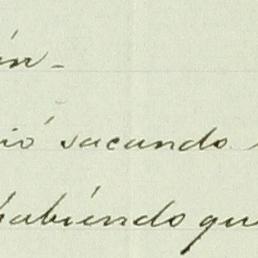 ón-
ió sacando
habiéndo qu